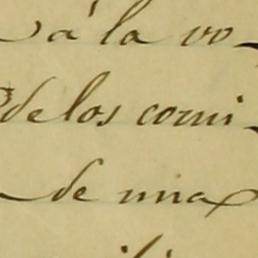 á la vo-
de los comi-
de una